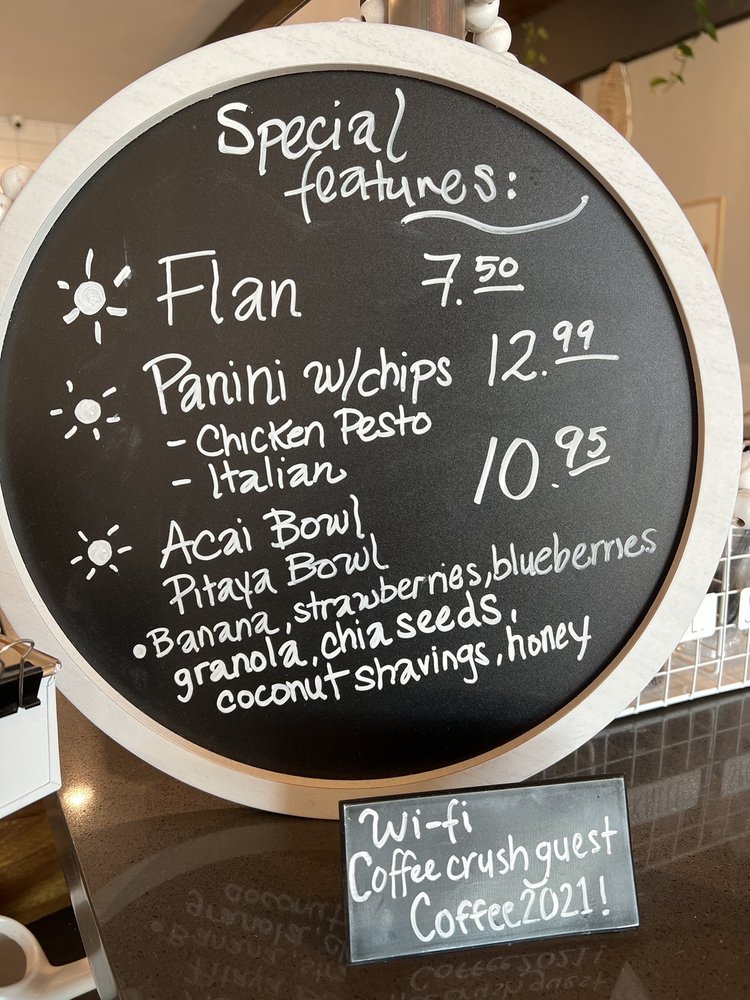 Special
features:
Flan 7.50
Panini w/chips 12.99
- Chicken Pesto
- Italian
Acai Bowl 10.95
Pitaya Bowl
• Banana, strawberries, blueberries
granola, chia seeds,
coconut shavings, honey
Wi-fi
Coffee crush guest
Coffee2021!